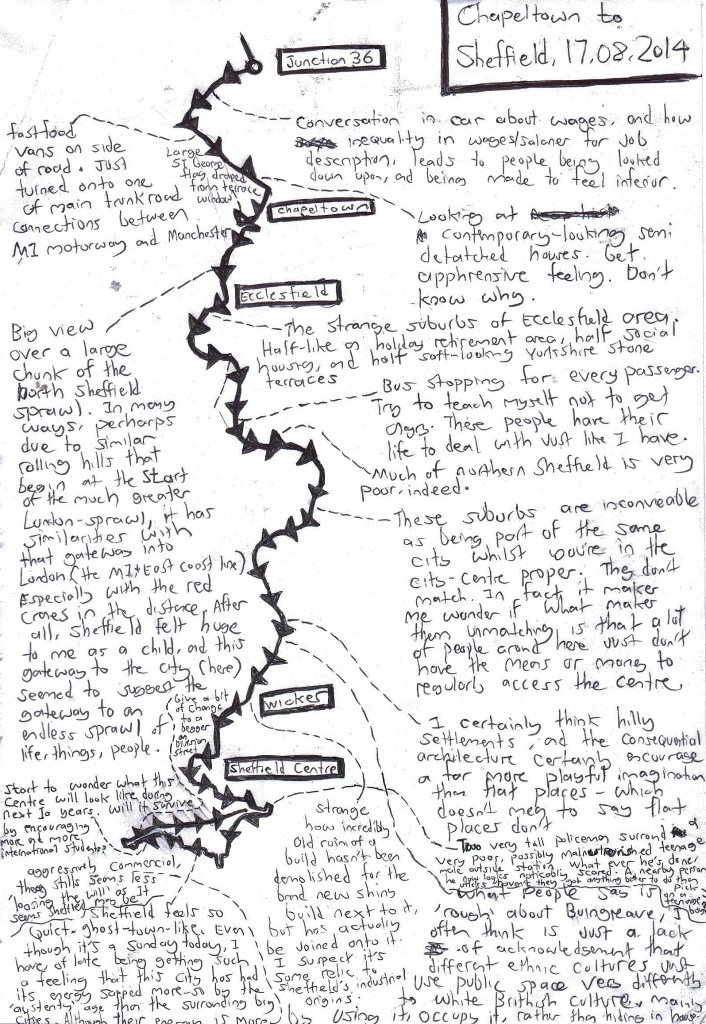 Chapeltown to
Sheffield, 17.08.2014
Junction 36
Conversation in car about wages, and how
inequality in wages/salaries for job
description, leads to people being looked
down upon, and being made to feel inferior.
fast food
vans on side
of road. Just
turned onto one
of main trunk road
connections between
M1 motorway and Manchester
Large
St George
flag draped
from terrace
window
Chapeltown
Looking at
contemporary-looking semi
detatched houses. Get
apphrensive feeling. Don't
know why.
Ecclesfield
The strange suburbs of Ecclesfield area.
Half-like a holiday retirement area, half social
housing, and half soft-looking Yorkshire Stone
terraces
Big view
over a large
chunk of the
(north Sheffield
sprawl). In many
ways, perharps
due to similar
rolling hills that
begin at the start
of the much greater
London-sprawl, it has
similarities with
that gateway into
London (the M1+East coast line)
Especially with the red
cranes in the distance. After
all, Sheffield felt huge
to me as a child, and this
gateway to the city (here)
seemed to suggest the
gateway to an
endless sprawl of
life, things, people.
Bus stopping for every passenger.
Try to teach myself not to get
angry. These people have their
life to deal with just like I have.
Much of northern Sheffield is very
poor, indeed.
These suburbs are inconveable
as being part of the same
city whilst you're in the
city-centre proper. They don't
match. In fact it makes
me wonder if what makes
them unmatching is that a lot
of people around here just don't
have the means or money to
regularly access the centre.
Wicker
Give a bit
of change
to a
beggar
on
Division
street
I certainly think hilly
settlements, and the consequential
architecture certainly encourage
a far more playful imagination
than flat places - which
doesn't mean to say flat
places don't
Sheffield Centre
Start to wonder what this
Centre will look like during
next 10 years. will it survive
by encouraging
more and more
international students?
aggressively commercial,
they still seems less
Sheffield feels so
quiet. ghost-town-like. Even
though it's a Sunday today, I
have of late being getting such
a feeling that this city has had
its energy sapped more so by the
'austerity' age than the surrounding big
cities. Although their energy is more
Strange
how incredibly
old ruin of a
build hasn't been
demolished for the
brand new shiny
build next to it,
but has actually
be joined onto it.
I suspect it's
some relic to
Sheffield's industrial
origins.
Two very tall policemen surround a
very poor, possibly malnourished teenage
male outside station. What ever he's done
he looks noticeably scared. A nearby person
What people say is
'rough' about Burngreave, I
often think is just a lack
of acknowledgement that
different ethnic cultures just
use public space very differently
to white British culture, mainly
by using it, occupy it, rather than hiding in house